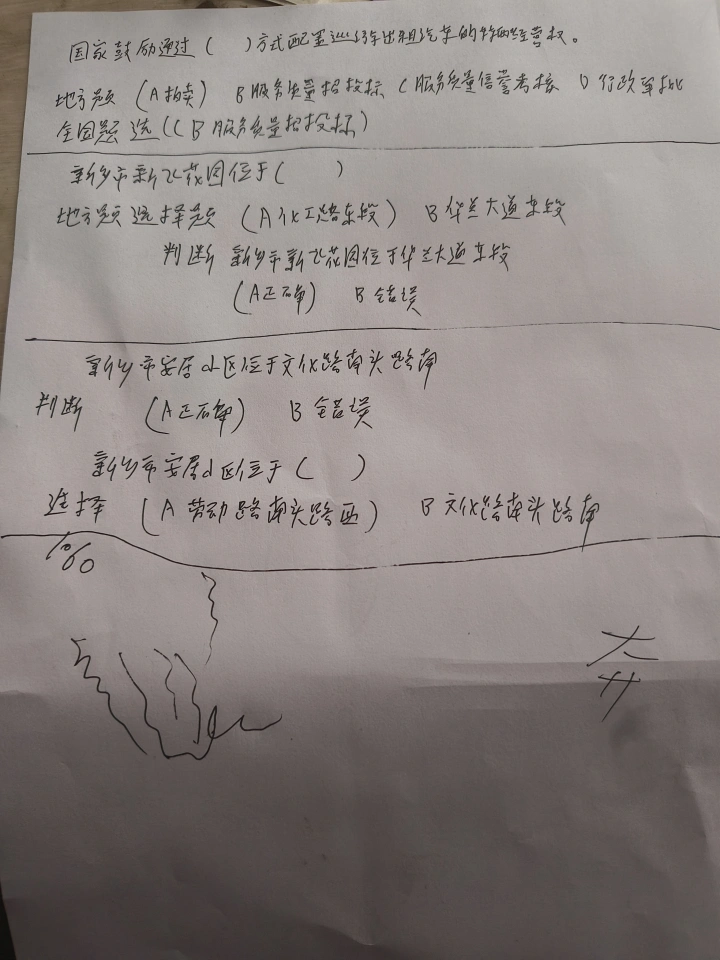 国家鼓励通过（ ）方式配置巡游车出租汽车的特许经营权。
地方题（A拍卖） B服务质量招投标 C服务质量信誉考核 D行政审批
全国题 选（（B服务质量招投标）
新乡市新飞花园位于（ ）
地方题 选择题（A化工路东段） B华兰大道东段
判断 新乡市新飞花园位于华兰大道东段
（A正确） B错误
新乡市安居小区位于文化路南头路南
判断 （A正确） B错误
新乡市安居小区位于（ ）
选择（A劳动路南头路西） B文化路南头路南